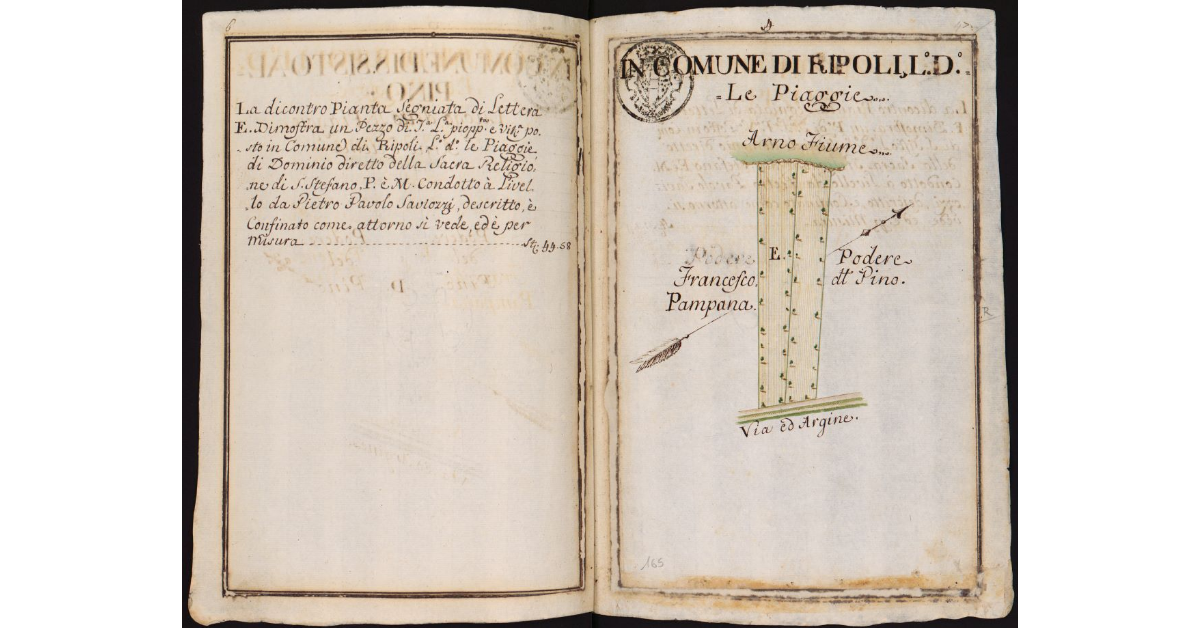 6
La dicontro Pianta Segniata di Lettera
E. Dimostra un Pezzo di T.ª L.ª piopp.ta e Vit.ª po,
sto in Comune di Ripoli L.º d.º le Piaggie
di Dominio diretto della Sacra Religio,
ne di S. Stefano P. è M. Condotto à Livel,
lo da Pietro Pavolo Saviozzi, descritto, è
Confinato come, attorno si vede, ed è per
misura Stª 44.58
4
IN COMUNE DI RIPOLI, L.º D.º
= Le Piaggie
Arno Fiume
Podere
Francesco
Pampana.
E.
Podere
dt.º Pino.
Via èd Argine.
R
165